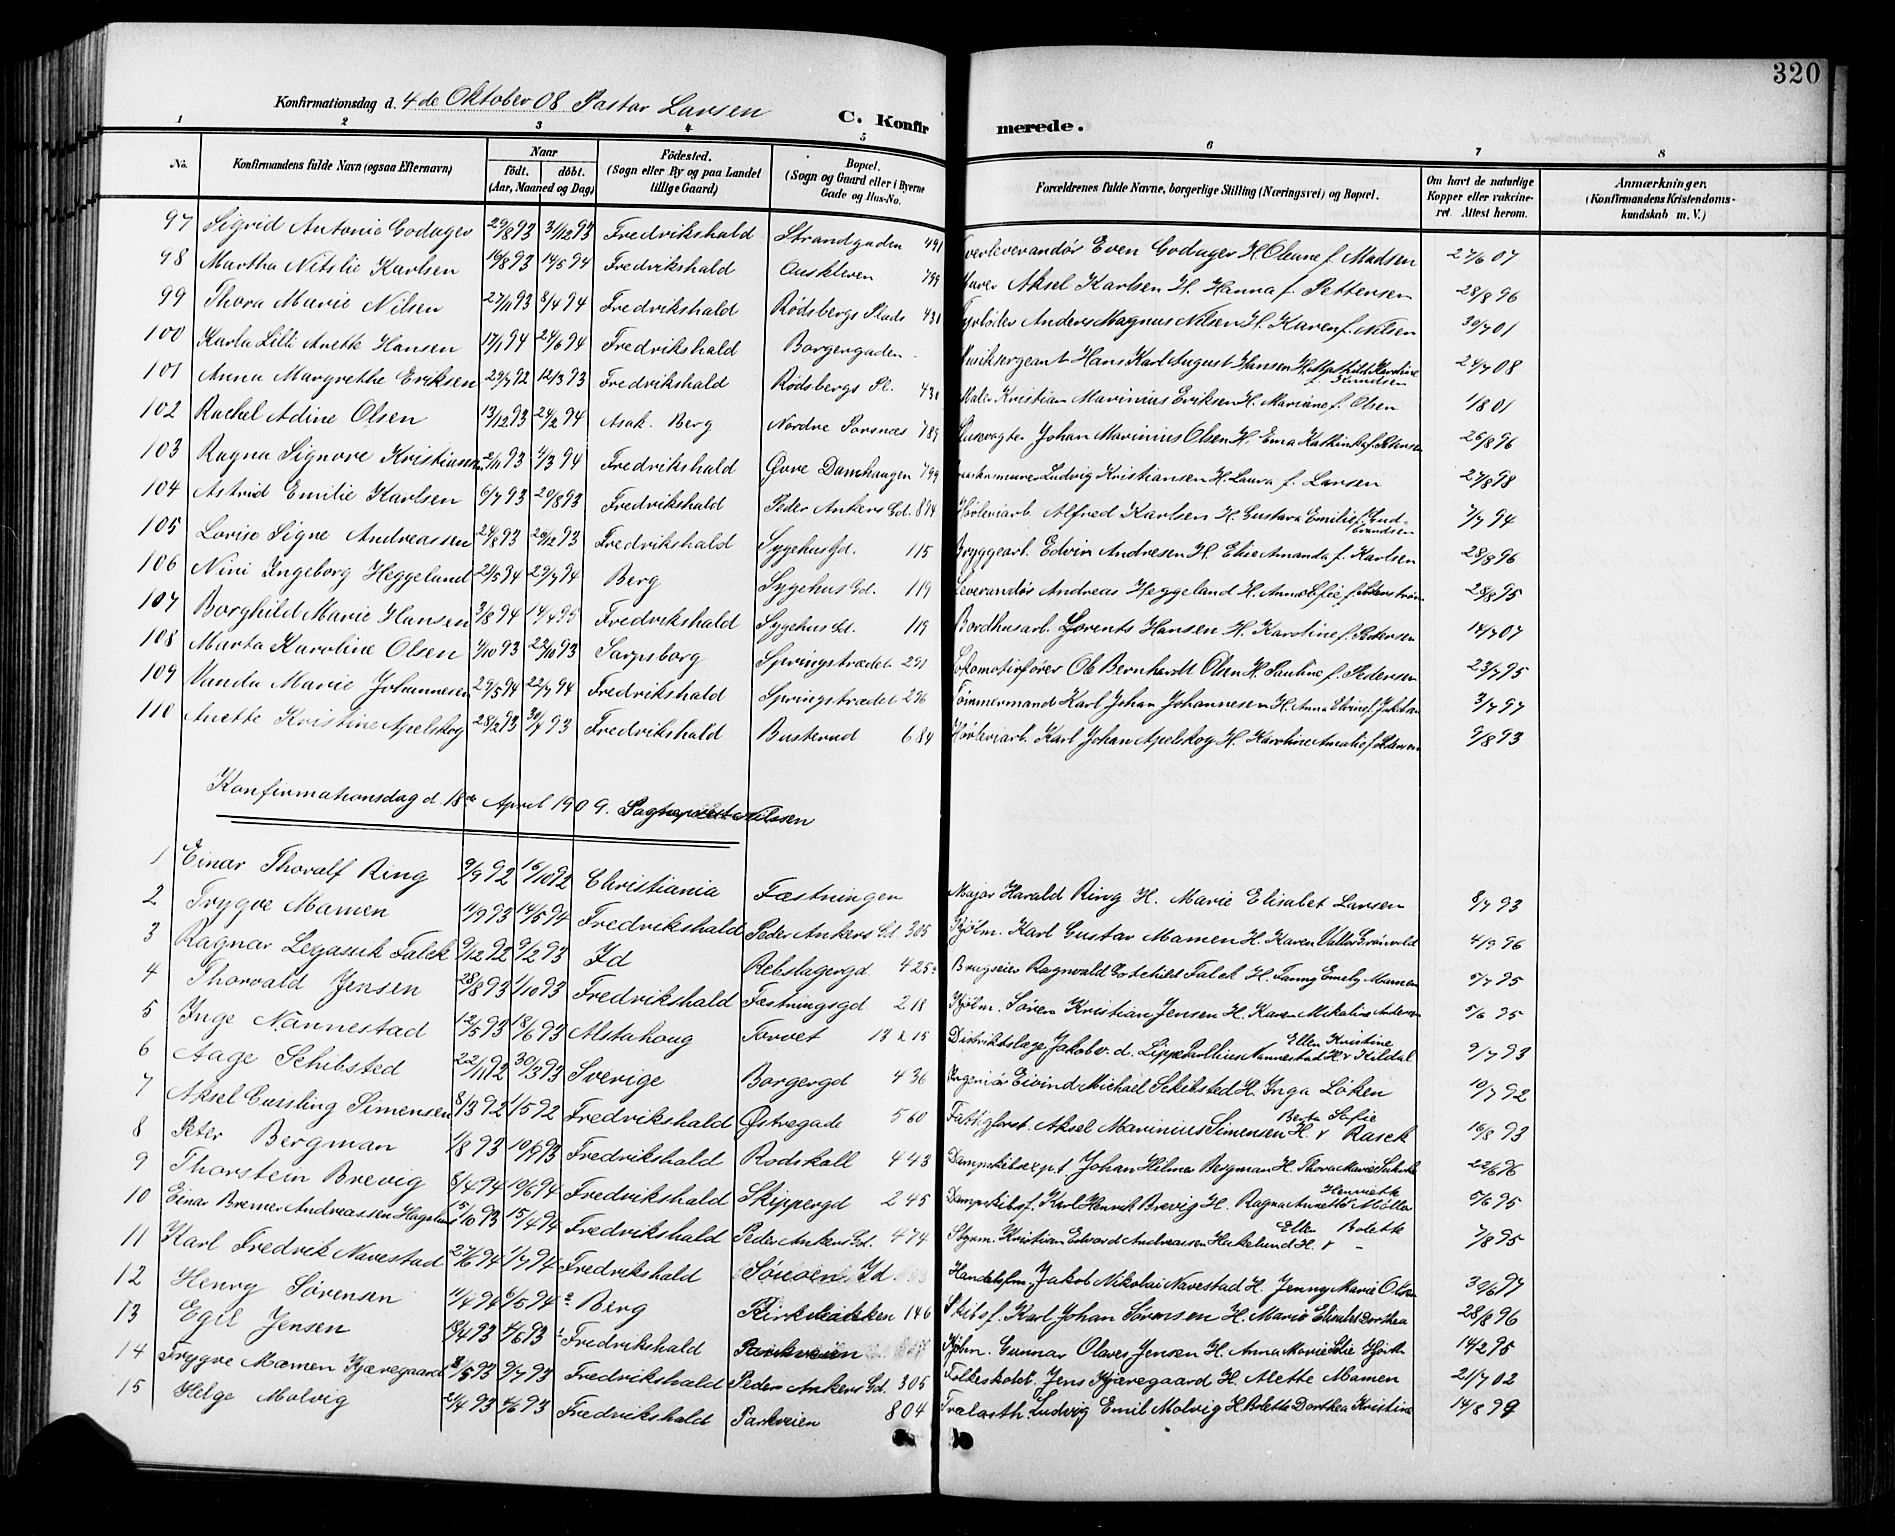 320
Konfirmationsdag d. 4de Oktober 08 Pastor Larsen
C. Konfirmerede.
1 2 3 4 5 6 7 8
No. Konfirmandens fulde Navn (ogsaa Efternavn) Naar födt. döbt. (Aar, Maaned og Dag) Födested. (Sogn eller By og paa Landet tillige Gaard) Bopæl. (Sogn og Gaard eller i Byerne Gade og Hus-No. Forældrenes fulde Navne, borgerlige Stilling (Næringsvei) og Bopæl. Om havt de naturlige Kopper eller vakcineret. Attest herom. Anmærkninger. (Konfirmandens Kristendomskundskab m. V.)
97 Sigrid Antonie Godager 29/8 93 3/12 93 Fredrikshald Strandgaden 491 Even Godager H. Oleane f. Madsen 27/6 07
98 Martha Karlsen 19/8 93 14/5 94 Fredrikshald 799 Murer Aksel Karlsen H. Hanna f. Pettersen 28/8 96
99 Thora Marie Nilsen 27/11 93 8/4 94 Fredrikshald Rödsbergs Plads 431 Fyrböder Anders Magnus Nilsen H. Karen f. Nilsen 30/7 01
100 Karla Lilli Anette Hansen 17/1 94 24/6 94 Fredrikshald Borgergaden Musiksergeant Hans Karl August Hansen H. Mathilde Karoline f. Knudsen 24/7 08
101 Anna Margrethe Eriksen 29/7 92 12/3 93 Fredrikshald Rödsbergs Pl. 430 Maler Kristian Marinius Eriksen H. Mariane f. Olsen 1/8 01
102 Rachel Adine Olsen 13/12 93 24/2 94 Asak. Berg Nordre Porsnæs 789 Johan Marinius Olsen H. Emma 26/8 96
103 Ragna Signore Kristiansen 2/11 93 4/3 94 Fredrikshald Øvre Damhaugen 799 Ludvig Kristiansen H. Laura f. Larsen 27/8 98
104 Astrid Emilie Karlsen 6/7 93 20/8 93 Fredrikshald Peder Ankers Gd. 874 Hövleriarb. Alfred Karlsen H. Gustava Emilie f. Gudbrandsen 7/7 94
105 Lovise Signe Andreassen 24/8 93 26/12 93 Fredrikshald Sygehus Gd. 115 Bryggearb. Edvin Andresen H. Elise Amanda f. Karlsen 28/8 96
106 Nini Ingeborg Heggelund 21/5 94 29/7 94 Berg Sygehus Gd. 119 Leverandör Andreas Heggeland H. Anna 28/8 95
107 Borghild Marie Hansen 3/8 94 14/4 95 Fredrikshald Sygehus Gd. 119 Bordhusarb. Lorents Hansen H. Karoline f. Pedersen 14/7 07
108 Marta Karoline Olsen 1/10 93 22/10 93 Sarpsborg Springstrædet 291 Lokomotivförer Ole Bernhardt Olsen H. Pauline f. Pedersen 23/7 95
109 Vanda Marie Johannesen 29/5 94 22/7 94 Fredrikshald Springstrædet 296 Tömmermand Karl Johan Johannesen H. Anna Elvine f. Jakobsen 3/7 97
110 Anette Kristine Apelskog 28/2 93 30/4 93 Fredrikshald Busterud 684 Hövleriarb. Karl Johan Apelskog H. Karoline Amalie f. Petersen 9/8 93
Konfirmationsdag d. 18de April 1909. Sognepræst Nilssen
1 Einar Thoralf Ring 9/9 92 16/10 92 Christiania Fæstningen Major Harald Ring H. Marie Elisabet Larsen 8/7 93
2 Trygve Mamen 11/9 93 14/5 94 Fredrikshald Peder Ankers Gd. 305 Kjölm. Karl Gustav Mamen H. Karen Valler Grönvold 4/9 96
3 Ragnar Falck 9/12 92 9/2 93 Id Rebslagergd. 425 Brugseier Ragnvald Falck H. Fanny Emely Mamen 5/7 95
4 Thorvald Jensen 28/8 93 1/10 93 Fredrikshald Fæstningsgd. 218 Kjölm. Sören Kristian Jensen H. Karen Mikaline Andersen 5/6 95
5 Inge Nannestad 12/5 93 18/6 93 Alstahoug Torvet 13 & 15 Distriktslæge Jakob v. d. Lippe Nannestad H. Ellen Kristine Kildal 9/7 93
6 Aage Schibsted 22/11 92 30/3 93 Sverige Borgergd 436 Ingeniör Eivind Michael Schibsted H. Inga Löken 10/7 92
7 Aksel Cussling Simensen 8/3 92 1/5 92 Fredrikshald Østregade 560 Fattigforst. Aksel Marinius Simensen H. Berta Sofie Rasck 16/8 93
8 Peter Bergman 1/8 93 10/9 93 Fredrikshald Rodskall 443 Dampskibsexp. Johan Hilmer Bergman H. Thora Marie 22/6 96
9 Thorstein Brevig 8/4 94 10/6 94 Fredrikshald Skippergd 245 Dampskibsf. Karl Henrik Brevig H. Ragna Annette Henriette Möller 5/6 95
10 Einar Bremer Andreassen Hagelund 15/10 93 15/4 94 Fredrikshald Peder Ankers Gd. 474 Styrm. Kristian Edvard Andreassen Hakelund H. Ellen Bolette 7/8 95
11 Karl Fredrik Navestad 27/6 94 1/7 94 Fredrikshald Id Handelsfm. Jakob Nikolai Navestad H. Jenny Marie Olsen 30/6 97
12 Henry Sörensen 11/4 94 6/5 94 Berg Kirkebakken 146 Skibsf. Karl Johan Sörensen H. Marie Elisabet Dorthea 28/8 96
13 Egil Jensen 19/4 93 4/6 93 Fredrikshald Parkveien Kjölm. Gunnar Olaves Jensen H. Anna Marie Hjorth 14/2 95
14 Trygve Mamen Kjæregaard 3/5 93 9/7 93 Fredrikshald Peder Ankers Gd. 305 Folkeskolel. Jens Kjæregaard H. Alette Mamen 21/7 02
15 Helge Molvig 21/4 93 4/6 93 Fredrikshald Parkveien 804 Trælasth. Ludvig Emil Molvig H. Bolette Dorthea Kristine 14/8 99